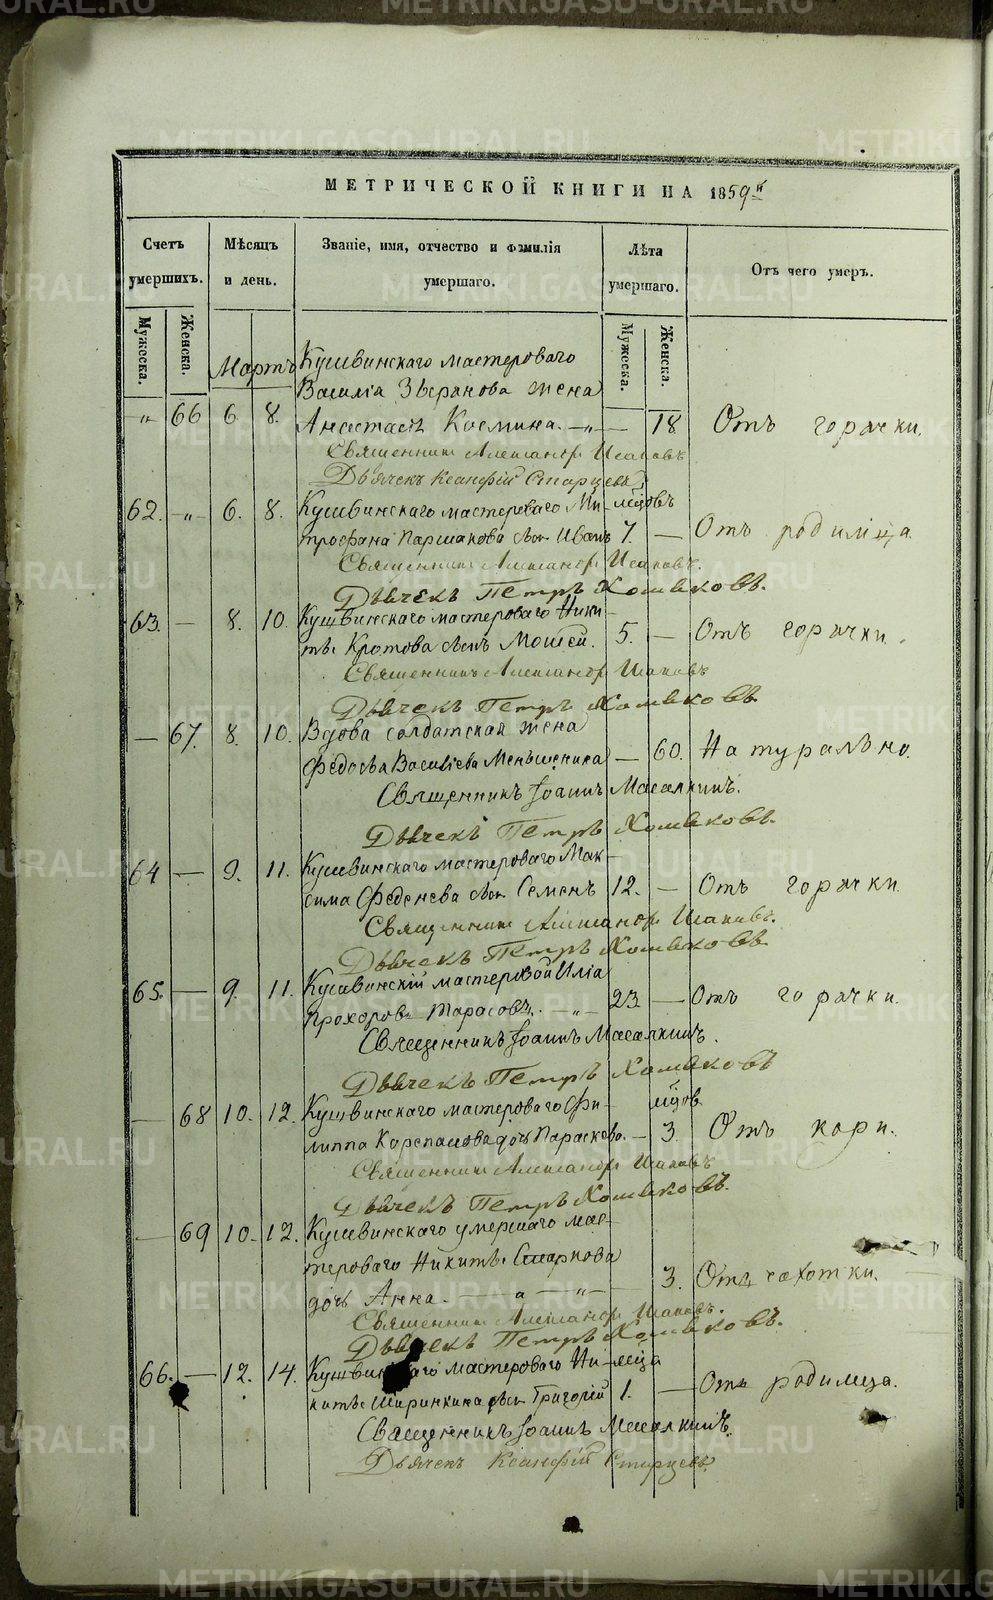 МЕТРИЧЕСКОЙ КНИГИ НА 1859й
Счетъ умершихъ. Мѣсяцъ и день. Званіе, имя, отчество и фамилія умершаго. Лѣта умершаго. Отъ чего умеръ.
Мужеска. Женска. Мужеска. Женска.
Мартъ Кушвинскаго мастероваго
Василія Звѣрянова жена
-„- 66 6. 8. Анастасія Космина. -„- — 18 Отъ горячки.
Священникъ Александръ Исаковъ
Дьячекъ Ксанфій Старцевъ
62. -„- 6. 8. Кушвинскаго мастероваго Ми- мѣсяцовъ
трофана Паршакова сынъ Иванъ 7. — Отъ родимца.
Священникъ Александръ Исаковъ.
Дьячекъ Петръ Хомяковъ.
63. — 8. 10. Кушвинскаго мастероваго Ники-
ты Кротова сынъ Моисей. 5. — Отъ горячки.
Священникъ Александръ Исаковъ
Дьячекъ Петръ Хомяковъ.
— 67. 8. 10. Вдова солдатская жена
Федосья Васильева Меньшенина — 60. Натурально.
Священникъ Іоаннъ Масалкинъ.
Дьячекъ Петръ Хомяковъ.
64 — 9. 11. Кушвинскаго мастероваго Мак-
сима Феденева сынъ Семенъ 12. — Отъ горячки.
Священникъ Александръ Исаковъ.
Дьячекъ Петръ Хомяковъ.
65. — 9. 11. Кушвинскій мастеровой Илія
Прохоровъ Тарасовъ. -„- 23 — Отъ горячки.
Священникъ Іоаннъ Масалкинъ.
Дьячекъ Петръ Хомяковъ
— 68 10. 12. Кушвинскаго мастероваго Фи- мѣсяцов.
липпа дочь Параскева. — 3. Отъ кори.
Священникъ Александръ Исаковъ
Дьячекъ Петръ Хомяковъ.
— 69 10. 12. Кушвинскаго умершаго мас-
тероваго Никиты Смаркова
дочь Анна. 3. Отъ чахотки.
Священникъ Александръ Исаковъ.
Дьячекъ Петръ Хомяковъ.
66. — 12. 14. Кушвинскаго мастероваго Ни- мѣсяца
киты Ширинкина сынъ Григорій 1. — Отъ родимца.
Священникъ Іоаннъ Масалкинъ.
Дьячекъ Ксанфій Старцевъ.
METRIKI.GASO-URAL.RU